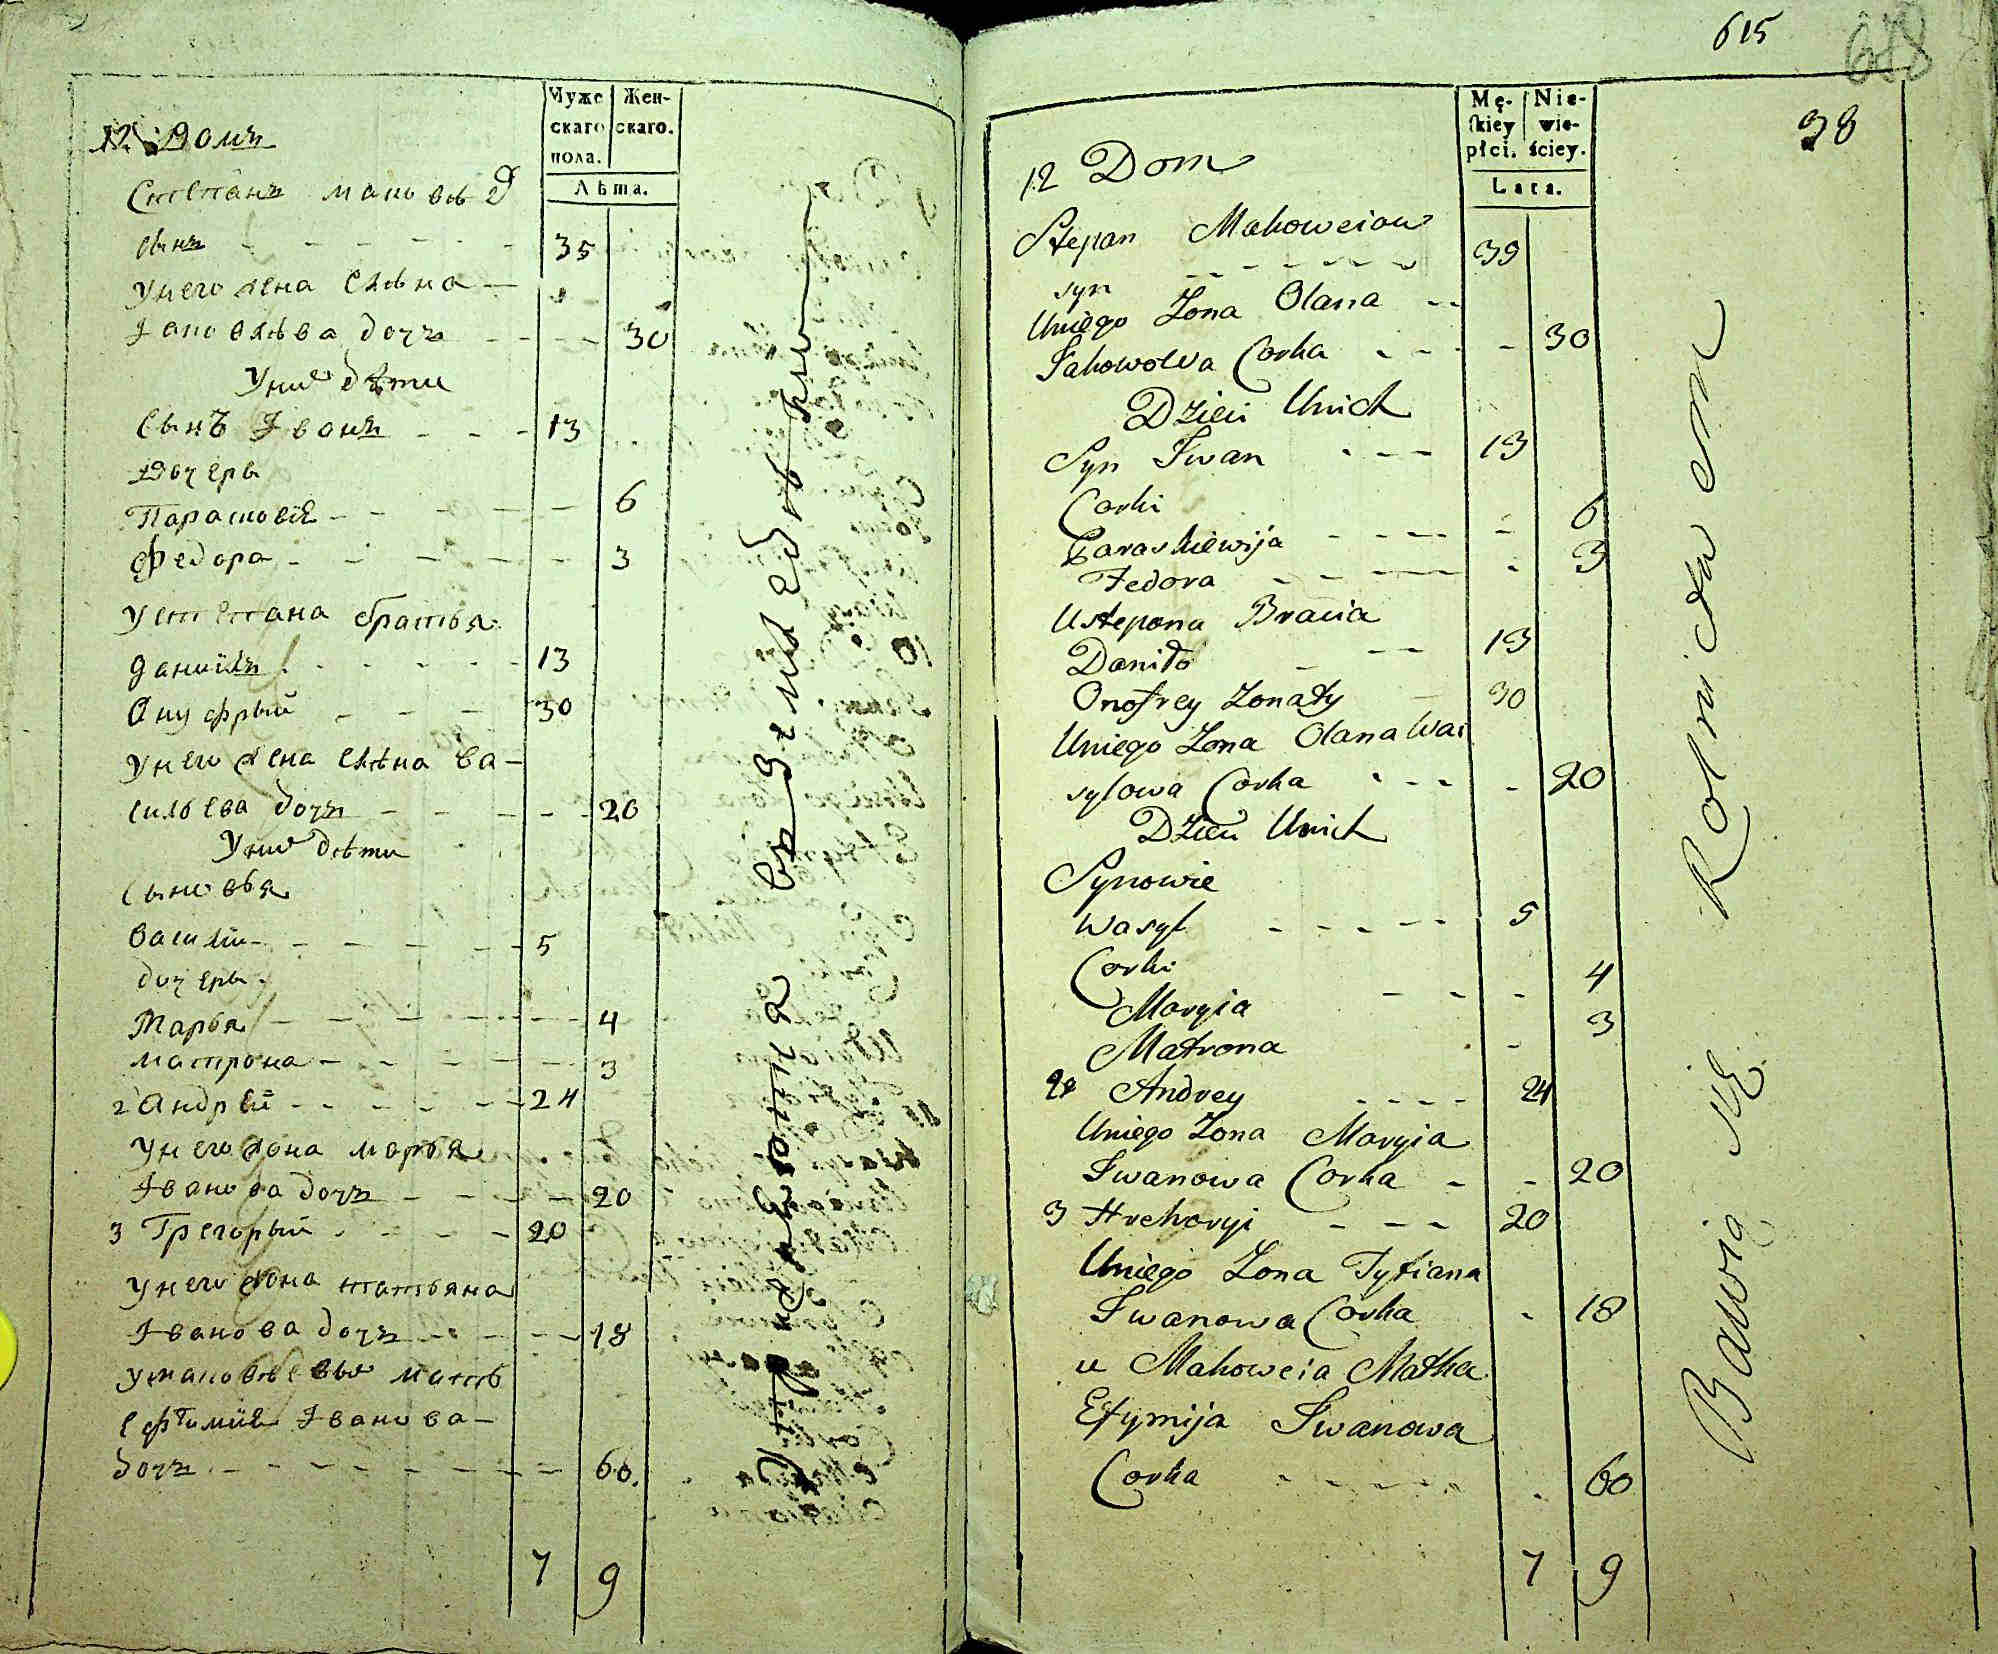 Муже Жен-
скаго скаго.
пола.
Лѣта.
12. Домъ
Степанъ маковѣ
сынъ 35
Унего жена Елѣна
Іаковлѣва дочъ 30
Уних дѣти
Сынъ Іванъ 13
Дочерѣ
Парасковія 6
Федора 3
Устепана братья
Данийлъ 13
Онуфрый 30
Унего жена елѣна ва-
сильева дочъ 20
Уних дѣти
Сыновья
Василій 5
дочерь
Марья 4
матрона 3
2 Андрей 24
Унего жена марья
Іванова дочъ 20
3 Грегорый 20
Унего жена татьяна
Іванова дочъ 18
умаковѣевых мать
ефтимія Іванова
дочъ 60.
7 9
въ земледѣ
615
38
Mę- Nie-
skiey wie-
płci. ściey.
Lata.
12 Dom
Stepan Makoweiow
syn 39
Uniego Zona Olana
Jakowolva Corka 30
Dzieci Unich
Syn Jwan 13
Corki
Paraskiewija 6
Fedora 3
Ustepana Bracia
Daniło 13
Onofrey Zonaty 30
Uniego Zona Olana Wa
sylowa Corka 20
Dzieci Unich
Synowie
Wasyl 5
Corki
Maryia 4
Matrona 3
2 Andrey 24
Uniego Zona Maryia
Jwanowa Corka 20
3 Hrehoryi 20
Uniego Zona Tytiana
Jwanowa Corka 18
u Makoweia Matka
Efymija Jwanowa
Corka 60
7 9
Bawią się Rolnictwem